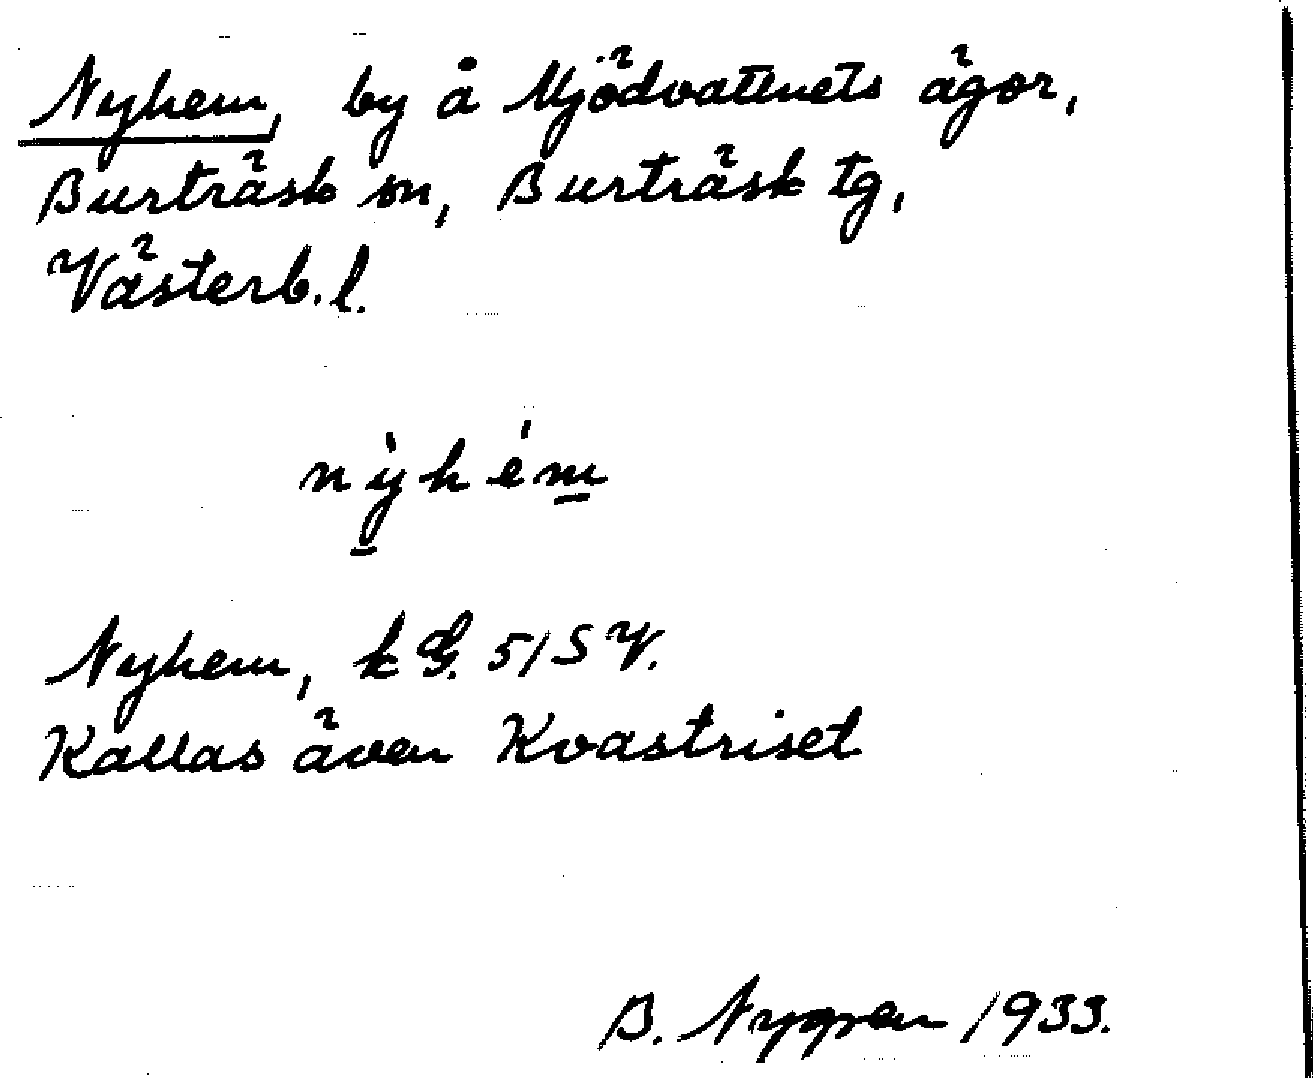 Nyhem, by å Mjödvattnets ägor,
Burträsk sn, Burträsk tg,
Västerb. l.
nỳhém
Nyhem, k G. 51 S V.
Kallas även Kvastriset
B. Nygren 1933.